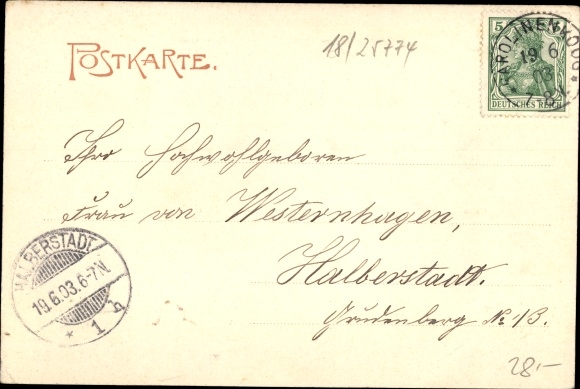 POSTKARTE.
18/25774
5
DEUTSCHES REICH
CAROLINENKOOG
19 6
03
7-8V.
Ihro Hochwohlgeboren
Frau von Westernhagen,
Halberstadt.
Grudenberg No 13.
HALBERSTADT
19.6.03.6-7N.
* 1
28.-